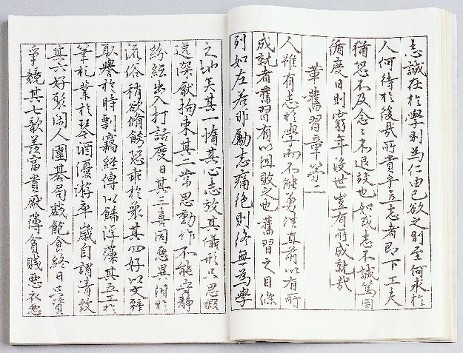 志誠在於學則爲仁由己欲之則至何求於
人何待於後哉所貴乎立志者即下工夫
猶恐不及念念不退故也如或志不誠篤因
循度日則窮年沒世豈有所成就哉
革舊習章第二
人雖有志於學而不能勇往直前以有所
成就者舊習有以沮敗之也舊習之目條
列如左若非勵志痛絕則終無爲學
之地矣其一惰其心志放其儀形只思暇
逸深厭拘束其二常思動作不能守靜
紛紜出入打話度日其三喜同惡異汨於
流俗稍欲修飭恐乖於衆其四好以文辭
取譽於時剽竊經傳以飾浮藻其五工於
筆札業於琴酒優游卒歲自謂清致
其六好聚閑人圍碁局戲飽食終日只資
爭競其七歆羨富貴厭薄貧賤惡衣惡